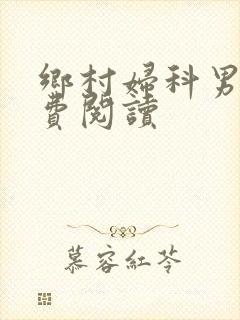 鄉村婦科男
費閱讀
慕容紅苓